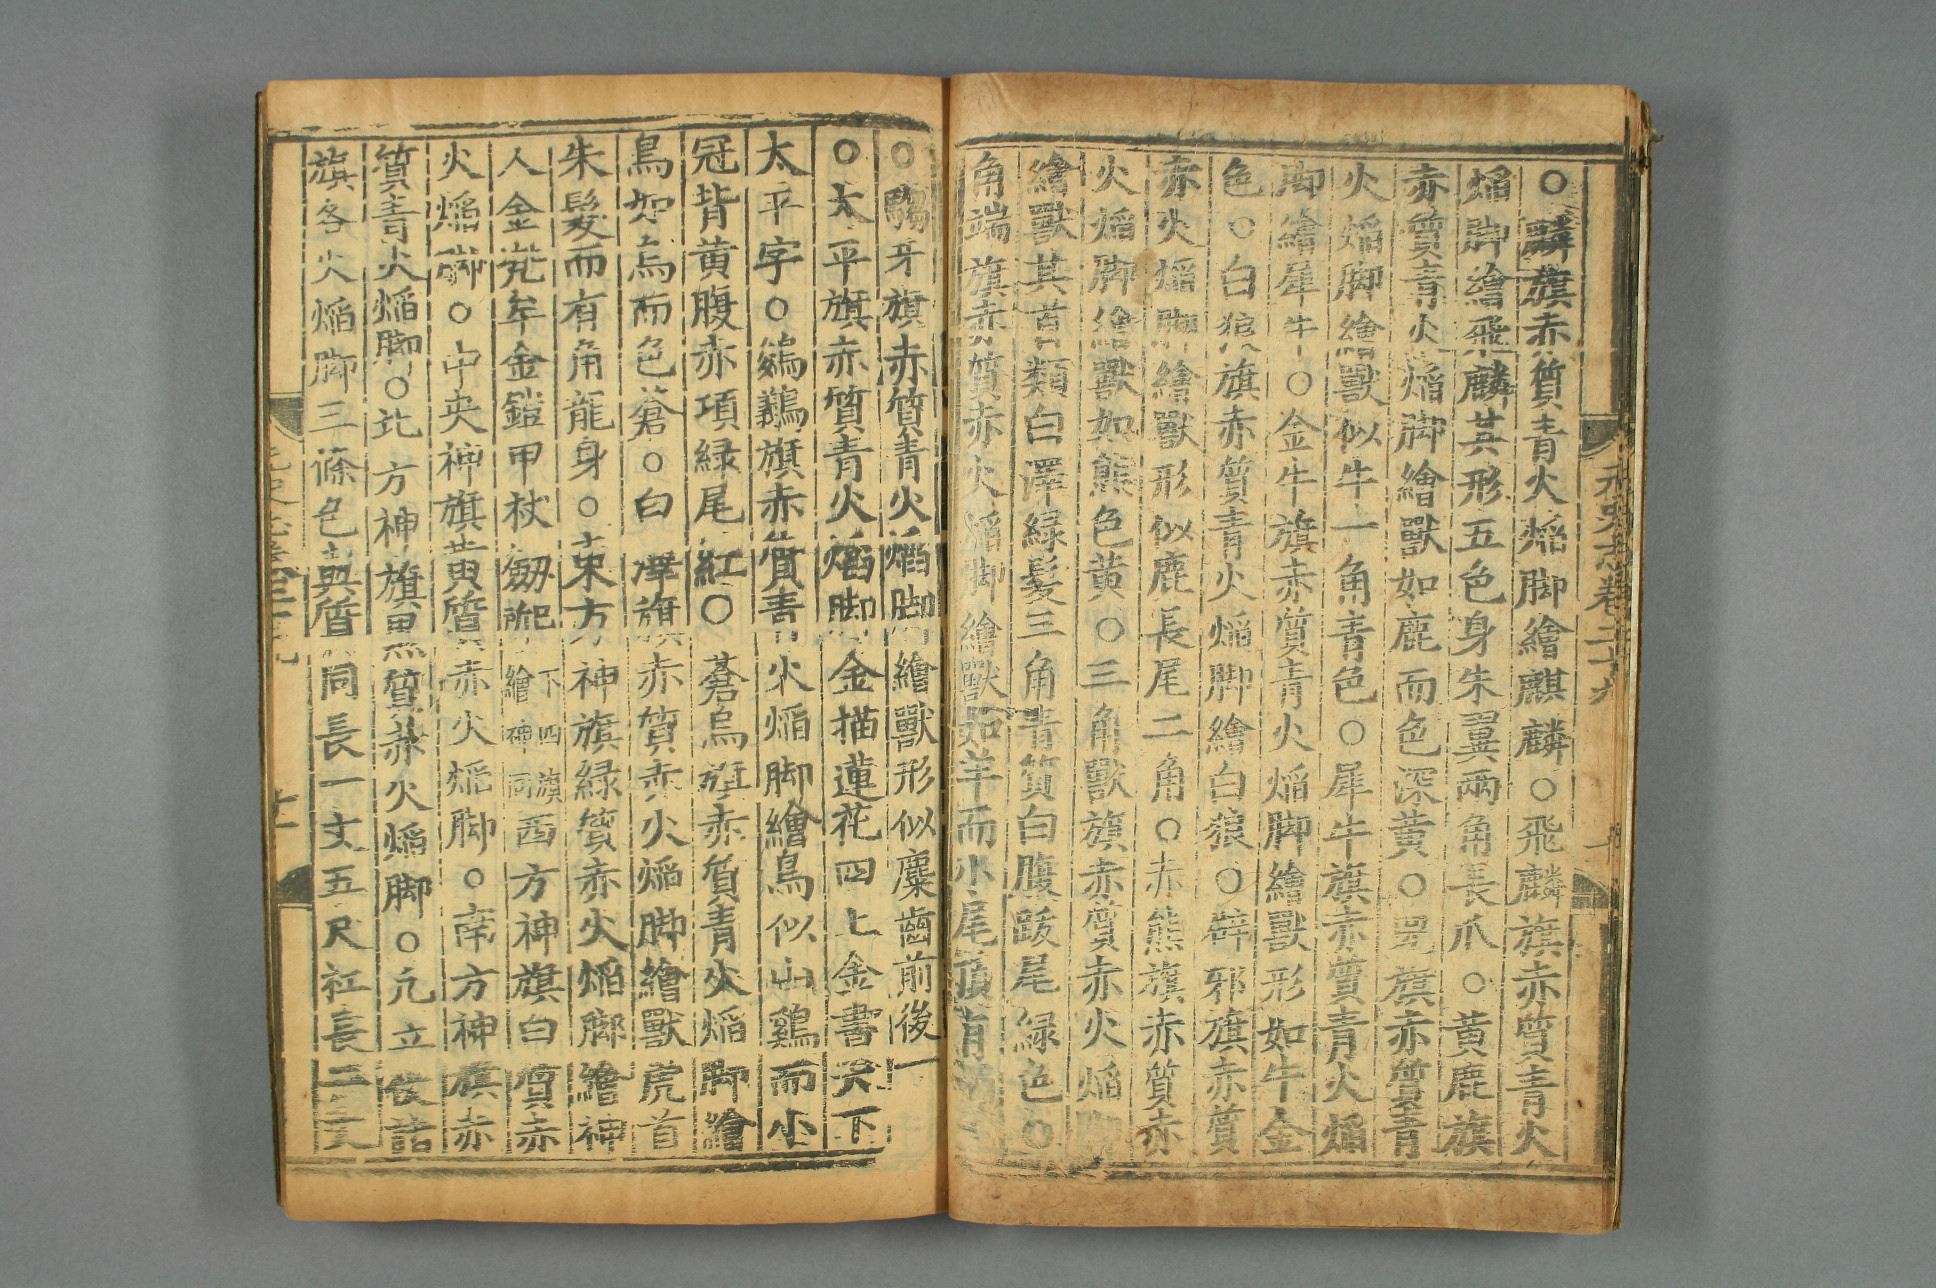 ○麟旗赤質青火焰脚繪麒麟○飛麟旗赤質青火
焰脚繪飛麟其形五色身朱翼兩角長爪○黃鹿旗
赤質青火焰脚繪獸如鹿而色深黃○兕旗赤質青
火焰脚繪獸似牛一角青色○犀牛旗赤質青火焰
脚繪犀牛○金牛旗赤質青火焰脚繪獸形如牛金
色○白狼旗赤質青火焰脚繪白狼○辟邪旗赤質
赤火焰脚繪獸形似鹿長尾二角○赤熊旗赤質赤
火焰脚繪獸如熊色黃○三角獸旗赤質赤火焰
繪獸其首類白澤緑髮三角青質白腹跋尾緑色○
角端旗赤質赤火焰脚繪獸如羊而小尾頂有
元史志卷二十九
○騶牙旗赤質青火焰脚繪獸形似麋齒前後一
○太平旗赤質青火焰脚金描蓮花四上金書天下
太平字○鵕鸃旗赤質青火焰脚繪鳥似山鷄而小
冠背黄腹赤項緑尾紅○蒼烏旗赤質青火焰脚繪
鳥如烏而色蒼○白澤旗赤質赤火焰脚繪獸虎首
朱髮而有角龍身○東方神旗緑質赤火焰脚繪神
人金兠牟金鎧甲杖劔靴下四旗繪神同西方神旗白質赤
火焰脚○中央神旗黄質赤火焰脚○南方神旗赤
質青火焰脚○北方神旗黒質赤火焰脚○凡立仗諸
旗各火焰脚三條色與質同長一丈五尺杠長二丈
元史志卷二十九
十一